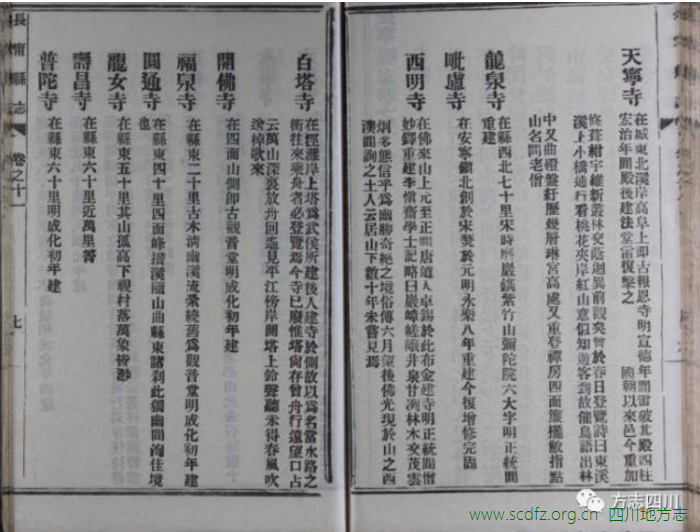 天寧寺
在城東北溪岸高阜上即古報恩寺明宣德年間雷破其殿四柱
宏治年間殿後建法堂雷復擊之 國朝以來邑令重加
修葺紺宇維新叢林交蔭迥異前觀矣曾於春日登覽詩曰東溪
溪上小橋通行看桃花夾岸紅山意似知遊客到故催鳥語出林
中又曲磴盤紆歷幾層琳宮高處又重登禪房四面簾櫳敞指點
山名問老僧
龍泉寺
在縣西北七十里宋時摩巖鐫紫竹山彌陀院六大字明正統間
重建
毗盧寺
在安寧鎮北創於宋焚於元明永樂八年重建今復增修完固
西明寺
在佛來山上元至正間唐道人卓錫於此布金建寺明正統間僧
妙鐸重建李惟齋學士記略曰巖嶂嵯峨井泉甘冽林木交茂雲
烟多態信乎爲幽勝奇絕之境俗傳六月望後佛光現於山之西
澳間詢之土人云居山下數十年未嘗見焉
白塔寺
在涇灘岸上塔爲武侯所建後人建寺於側故以爲名當水路之
衝往來乘舟者必登覽焉今寺已廢惟塔尚存曾舟行遠望口占
云萬山深裏放舟回遙見平江傍岸開塔上鈴聲聽未得春風吹
送棹歌來
開佛寺
在四面山側即古觀音堂明成化初年建
福泉寺
在縣東二十里古木清幽溪流縈繞舊爲觀音堂明成化初年建
圓通寺
在縣東四十里四面峰攢溪迴山曲縣東諸刹此獨幽間洵佳境
也
龍女寺
在縣東五十里其山孤高下視村落萬象皆渺
壽昌寺
在縣東六十里近萬里箐
普陀寺
在縣東六十里明成化初年建
長寧縣志
卷之十一
七
方志四川
www.scdfz.org.cn 四川地方志